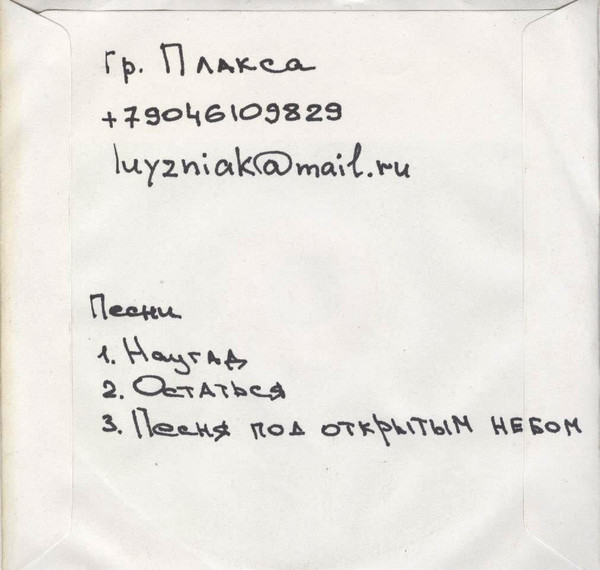 гр. Плакса
+79046109829
luyzniak@mail.ru
Песни
1. Наугад
2. Остаться
3. Песня под открытым небом